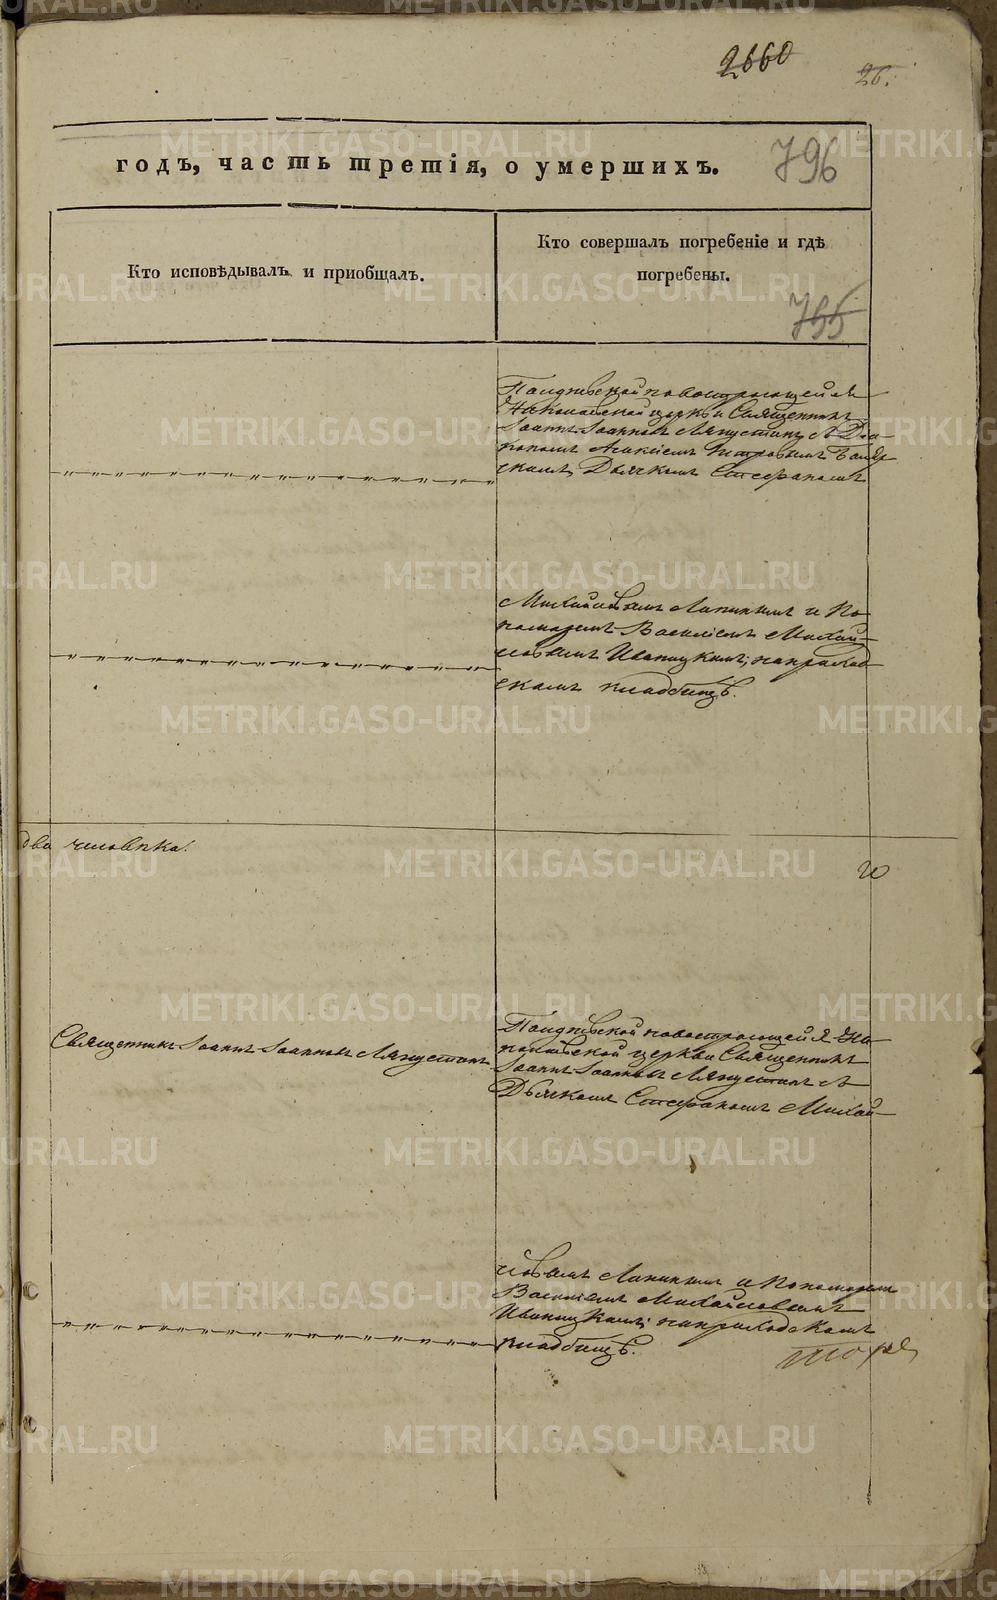 2660
26.
годъ, часть третія, о умершихъ.
796
Кто исповѣдывалъ и пріобщалъ.
Кто совершалъ погребеніе и гдѣ
погребены.
755
новостроющейся
Николаевской церкви Священникъ
Іоаннъ Іоанновъ Ляпустинъ съ Діа-
кономъ Петровымъ
Дьячкомъ Стефаномъ
Михайловымъ Лапинымъ и По
номаремъ Василіемъ Михай-
ловымъ Иваницкимъ; на приход-
скомъ кладбищѣ.
два человѣка.
Священникъ Іоаннъ Іоанновъ Ляпустинъ
новостроющейся Ни-
колаевской церкви Священникъ
Іоаннъ Іоанновъ Ляпустинъ съ
Дьячкомъ Стефаномъ Михай-
ловымъ Лапинымъ и Пономаремъ
Василіемъ Михайловымъ
Иваницкимъ; на приходскомъ
кладбищѣ.
METRIKI.GASO-URAL.RU